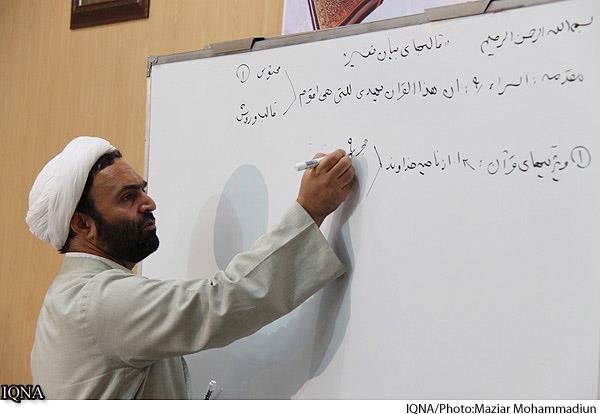 بسم الله الرحمن الرحیم
"قالبهای بیان تفسیر"
مقدمه: اسراء ۹: ان هذا القرآن یهدی للتی هی اقوم
محتوی ①
قالب و روش
① ویژگیهای قرآن: ۱۲ از ناحیه خداوند
IQNA
IQNA/Photo:Maziar Mohammadiun